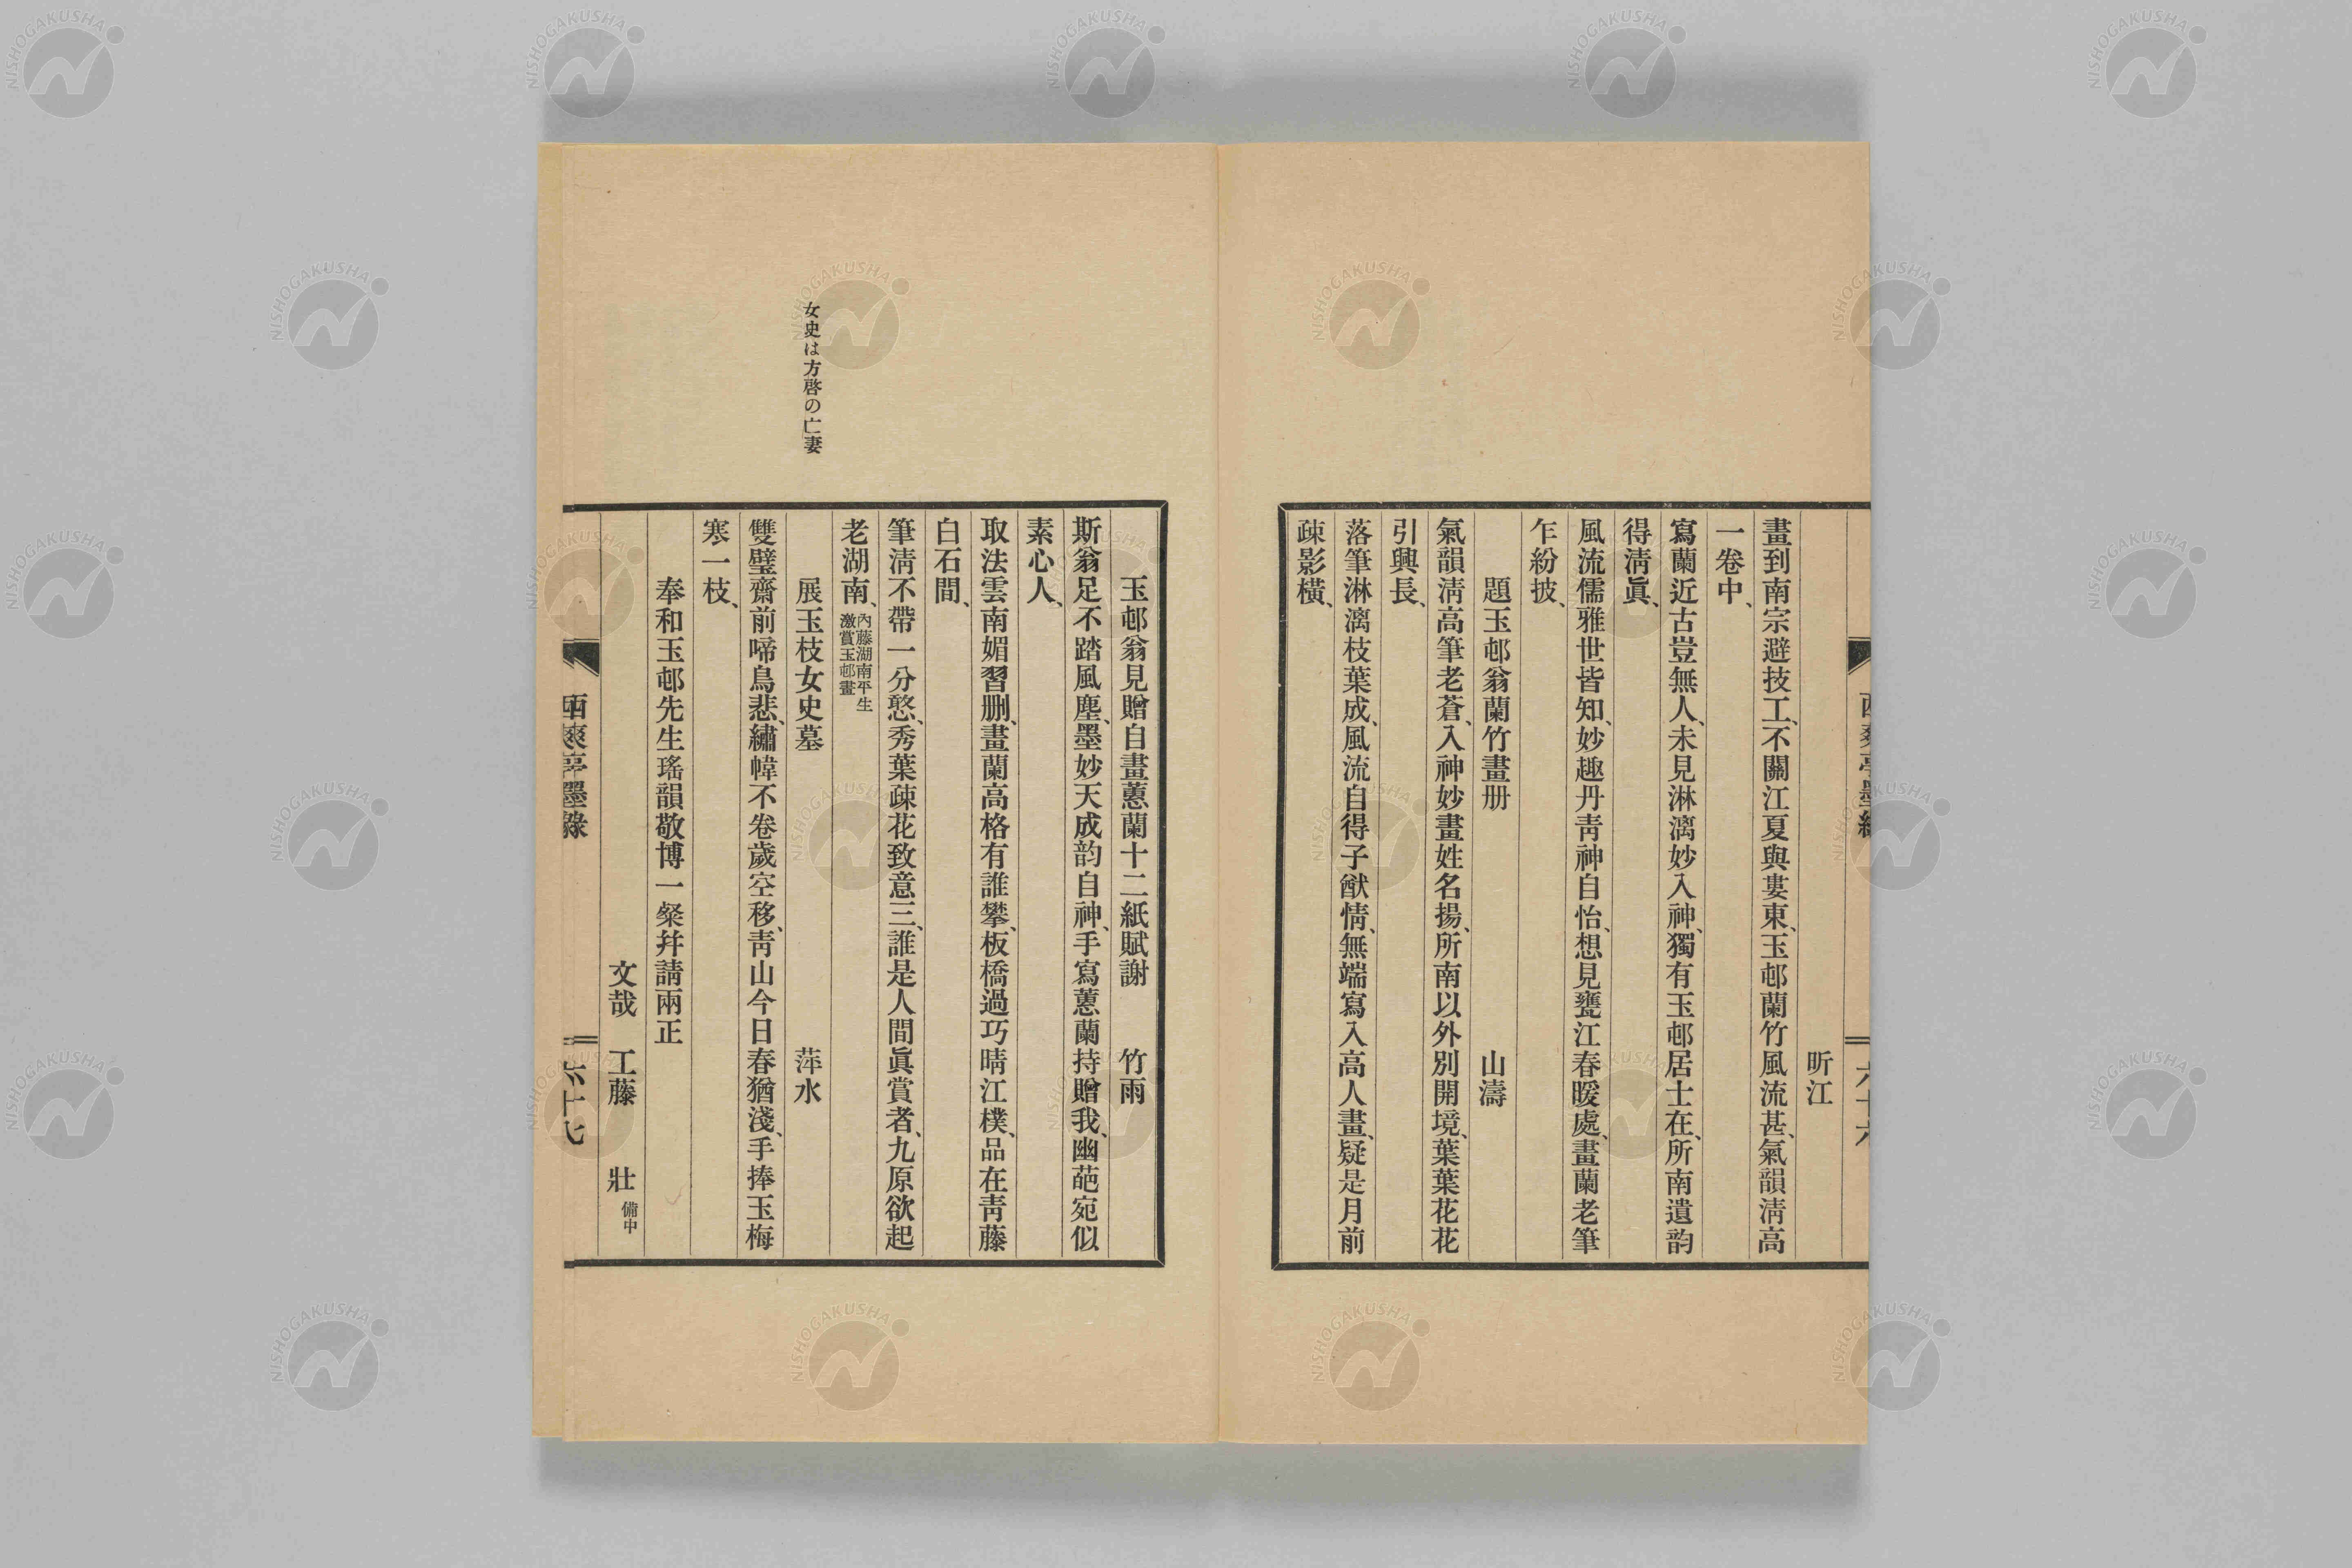 昕江
畫到南宗避技工、不關江夏與婁東、玉邨蘭竹風流甚、氣韻淸高
一卷中、
寫蘭近古豈無人、未見淋漓妙入神、獨有玉邨居士在、所南遺韵
得淸眞、
風流儒雅世皆知、妙趣丹靑神自怡、想見甕江春暖處、畫蘭老筆
乍紛披、
題玉邨翁蘭竹畫册　山濤
氣韻淸高筆老蒼、入神妙畫姓名揚、所南以外別開境、葉葉花花
引興長、
落筆淋漓枝葉成、風流自得子猷情、無端寫入高人畫、疑是月前
疎影橫、
六十六
玉邨翁見贈自畫蕙蘭十二紙賦謝　竹雨
斯翁足不踏風塵、墨妙天成韵自神、手寫蕙蘭持贈我、幽葩宛似
素心人、
取法雲南媚習删、畫蘭高格有誰攀、板橋過巧晴江樸、品在靑藤
白石間、
筆淸不帶一分憨、秀葉疎花致意三、誰是人間眞賞者、九原欲起
老湖南、內藤湖南平生激賞玉邨畫
女史は方啓の亡妻
展玉枝女史墓　萍水
雙璧齋前啼鳥悲、繡幃不卷歲空移、靑山今日春猶淺、手捧玉梅
寒一枝、
奉和玉邨先生瑤韻敬博一粲幷請兩正
文哉　工藤　壯 備中
墨綠
六十七
NISHOGAKUSHA